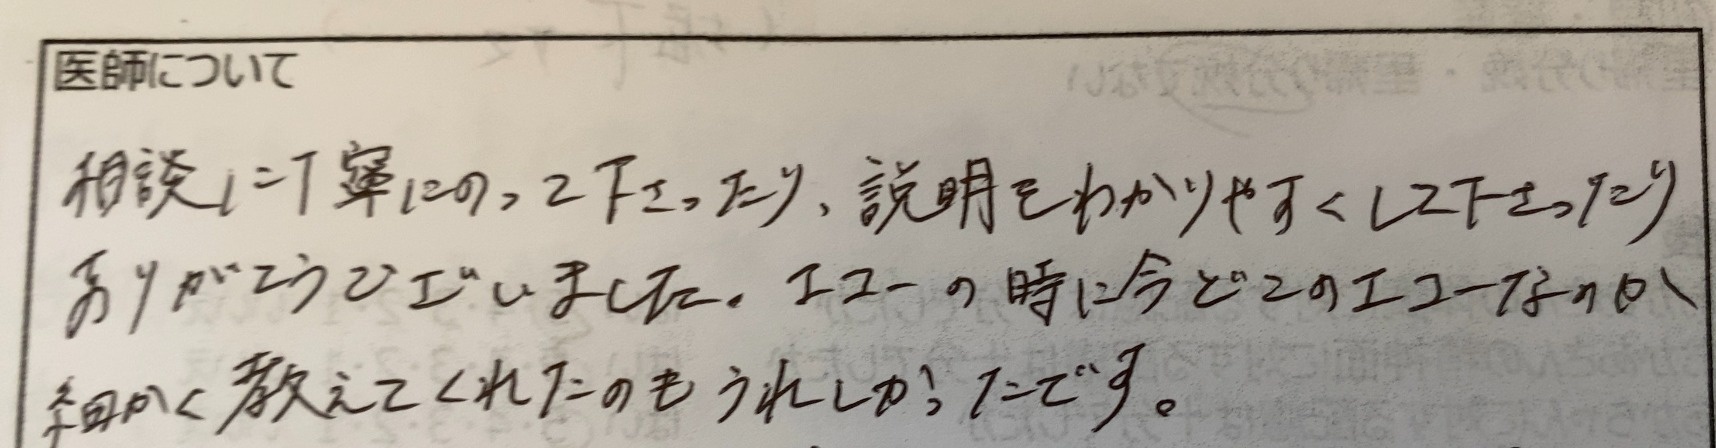 医師について
相談に丁寧にのって下さったり、説明をわかりやすくして下さったり
ありがとうございました。エコーの時に今どこのエコーなのか
細かく教えてくれたのもうれしかったです。